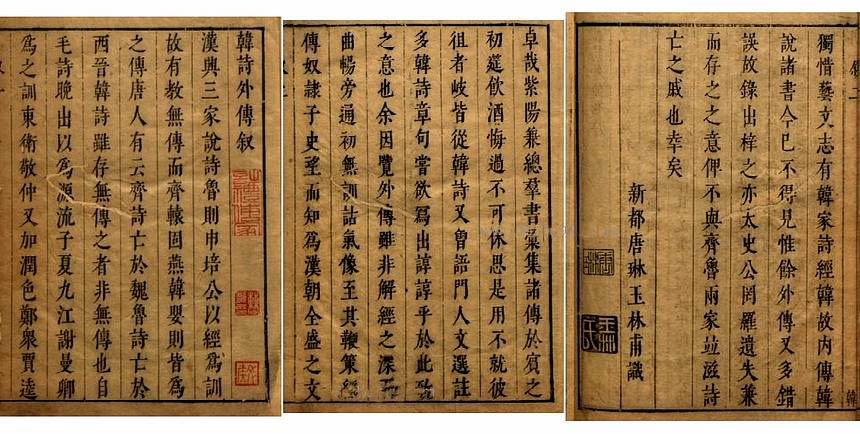 韓詩外傳叙
漢興三家說詩魯則申培公以經爲訓
故有教無傳而齊轅固燕韓嬰則皆爲
之傳唐人有云齊詩亡於魏魯詩亡於
西晉韓詩雖存無傳之者非無傳也自
毛詩晚出以爲源流子夏九江謝曼卿
爲之訓東衛敬仲又加潤色鄭衆賈逵
卓哉紫陽兼總羣書彙集諸傳於賓之
初筵飲酒悔過不可休思是用不就彼
徂者岐皆從韓詩又魯語門人文選註
多韓詩章句嘗欲爲出諄諄乎於此致
之意也余因覽外傳雖非解經之深至
曲暢旁通初無訓詁氣像至其鞭策經
傳奴隸子史望而知爲漢朝全盛之文
獨惜藝文志有韓家詩經韓故内傳韓
說諸書今已不得見惟餘外傳又多錯
誤故錄出梓之亦太史公罔羅遺失兼
而存之之意俾不與齊魯兩家竝滋詩
亡之戚也幸矣
新都唐琳玉林甫識